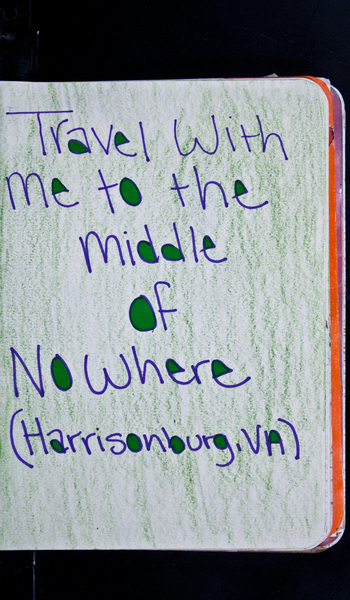 Travel With
me to the
middle
of
Nowhere
(Harrisonburg, VA)